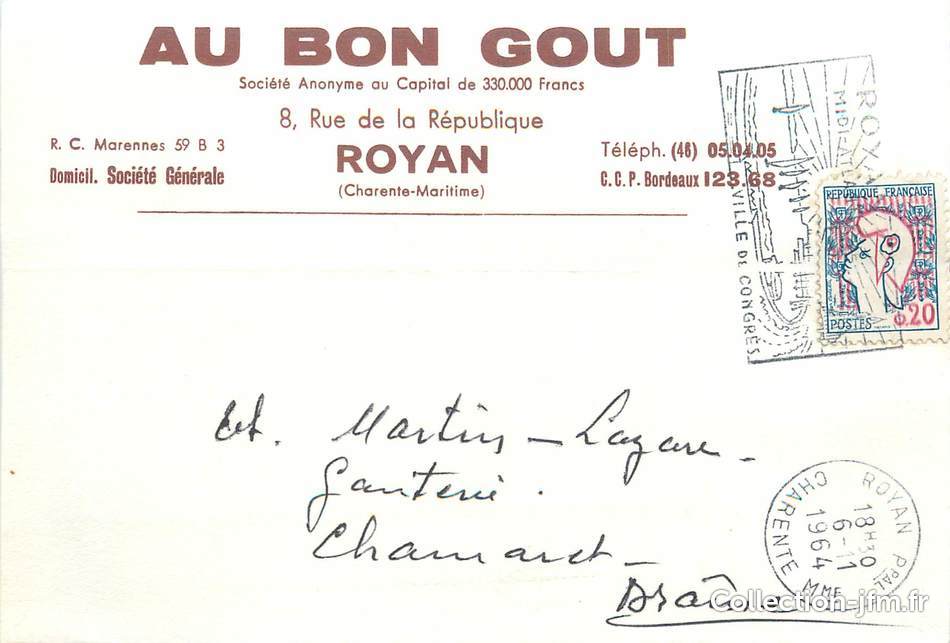 AU BON GOUT
Société Anonyme au Capital de 330.000 Francs
8, Rue de la République
R. C. Marennes 59 B 3
ROYAN
Téléph. (46) 05.04.05
Domicil. Société Générale
(Charente-Maritime)
C.C.P. Bordeaux 123.68
VILLE DE CONGRÈS
REPUBLIQUE FRANÇAISE
0.20
POSTES
Et. Martin - Lazare -
Ganterie.
Chamaret -
Drôme
ROYAN PPAL
18H30
6-11
1964
CHARENTE MME
Collection-jfm.fr